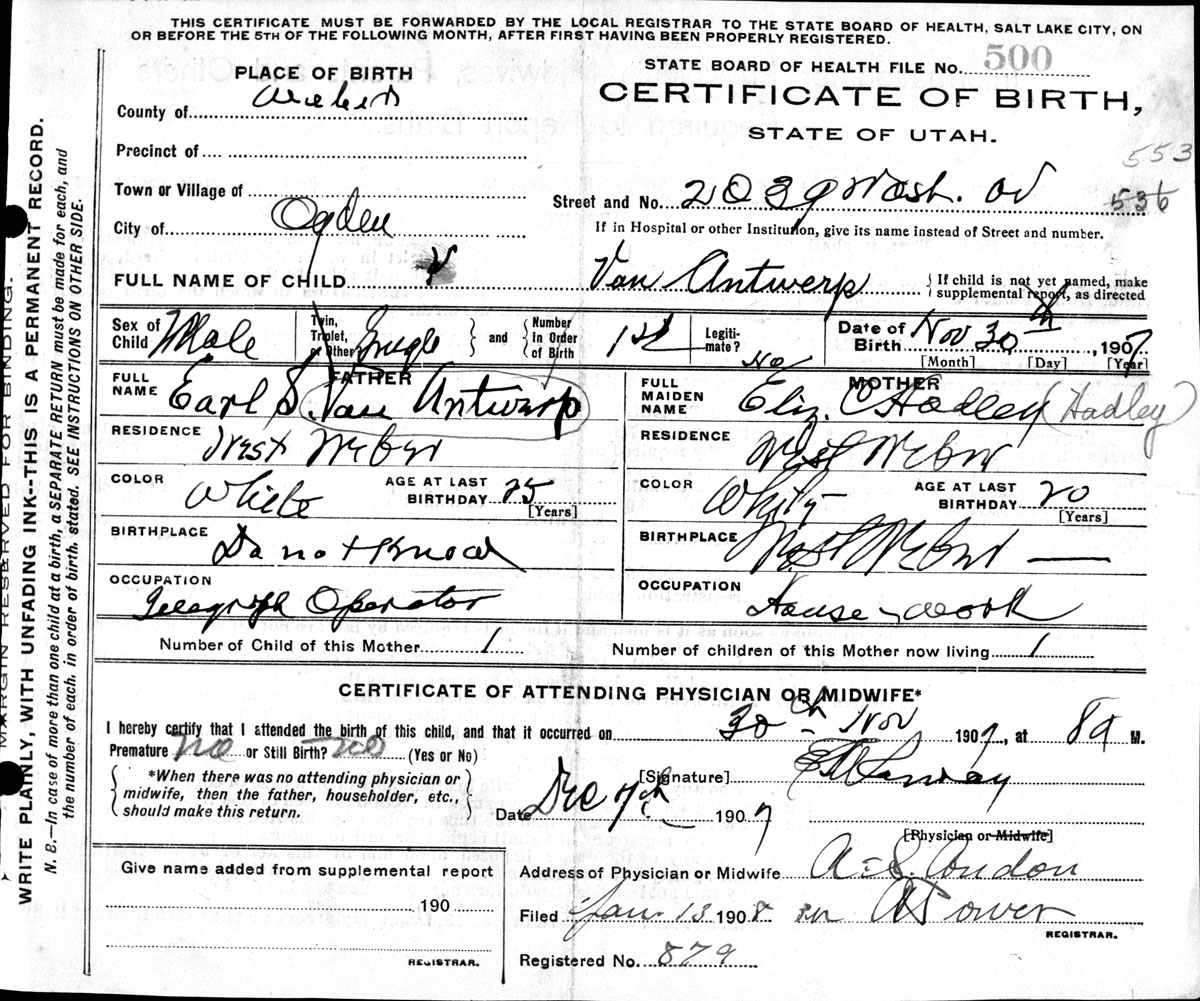 THIS CERTIFICATE MUST BE FORWARDED BY THE LOCAL REGISTRAR TO THE STATE BOARD OF HEALTH, SALT LAKE CITY, ON
OR BEFORE THE 5TH OF THE FOLLOWING MONTH, AFTER FIRST HAVING BEEN PROPERLY REGISTERED.
STATE BOARD OF HEALTH FILE No. 500
CERTIFICATE OF BIRTH,
STATE OF UTAH.
PLACE OF BIRTH
County of Weber
Precinct of
Town or Village of
City of Ogden
553
Street and No. 2039 Wash. av 536
If in Hospital or other Institution, give its name instead of Street and number.
FULL NAME OF CHILD Van Antwerp
If child is not yet named, make supplemental report, as directed
Sex of Child Male
Twin, Triplet, or Other Single and Number in Order of Birth 1st
Legitimate? No
Date of Birth Nov 30th, 1907
[Month] [Day] [Year]
FATHER
FULL NAME Earl S. Van Antwerp
RESIDENCE West Weber
COLOR White AGE AT LAST BIRTHDAY 25
[Years]
BIRTHPLACE
OCCUPATION Telegraph Operator
MOTHER
FULL MAIDEN NAME Eliz. C Hadley (Hadley)
RESIDENCE West Weber
COLOR White AGE AT LAST BIRTHDAY 20
[Years]
BIRTHPLACE West Weber
OCCUPATION House-work
Number of Child of this Mother 1 Number of children of this Mother now living 1
CERTIFICATE OF ATTENDING PHYSICIAN OR MIDWIFE*
I hereby certify that I attended the birth of this child, and that it occurred on 30th Nov 1907, at 8a M.
Premature no or Still Birth? no (Yes or No)
*When there was no attending physician or
midwife, then the father, householder, etc.,
should make this return.
[Signature]
Date Dec 7th 1907
[Physician or Midwife]
Address of Physician or Midwife A. S. Condon
Filed Jan. 13 1908
REGISTRAR.
Registered No. 879
Give name added from supplemental report
190
REGISTRAR.
MARGIN RESERVED FOR BINDING.
WRITE PLAINLY, WITH UNFADING INK--THIS IS A PERMANENT RECORD.
N. B.—In case of more than one child at a birth, a SEPARATE RETURN must be made for each, and
the number of each, in order of birth, stated. SEE INSTRUCTIONS ON OTHER SIDE.